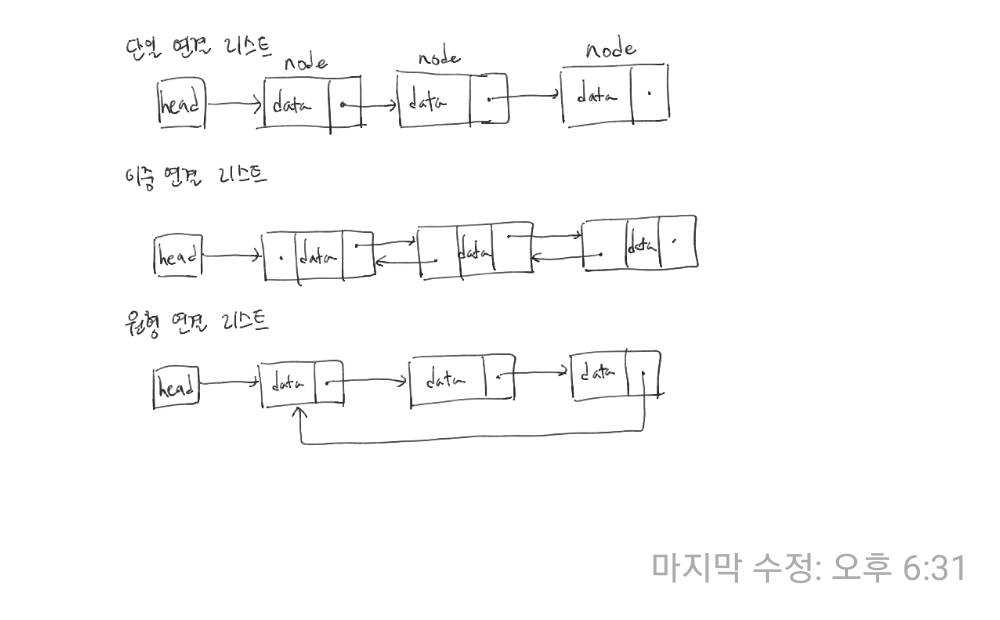 단일 연결 리스트
node node node
head data data data
이중 연결 리스트
head data data data
원형 연결 리스트
head data data data
마지막 수정: 오후 6:31